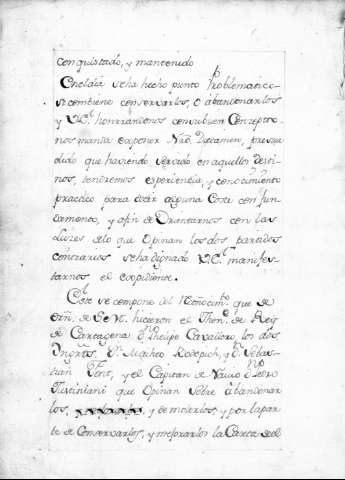 conquistado, y mantenido
En el dia se ha hecho punto Problematico
si combiene conservarlos, o abandonarlos
y V.E. honrrandonos con su buen Concepto
nos manda exponer Nro. Dictamen, presua
dido que haviendo servido en aquellos desti
nos, tendremos experiencia, y conocimiento
practico para decir alguna cosa con fun
damento, y afin de Orientarnos con las
Luzes de lo que Opinan los dos partidos
contrarios se ha dignado V.E. manifes
tarnos el expediente.
Este se compone del Reconocim.to que de
orñ. de S.M. hicieron el Then.te de Rey
de Cartagena D. Phelipe Cavallero, los dos
Ingrôs. D. Matheo Vodopich, y D. Sebas
tian Feringan, y el Capitan de Navio D.n Pedro
Justiniani que Opinan sobre abandonar
los, y demolerlos, y por la par
te de Conservarlos, y mejorarlos la Carta del